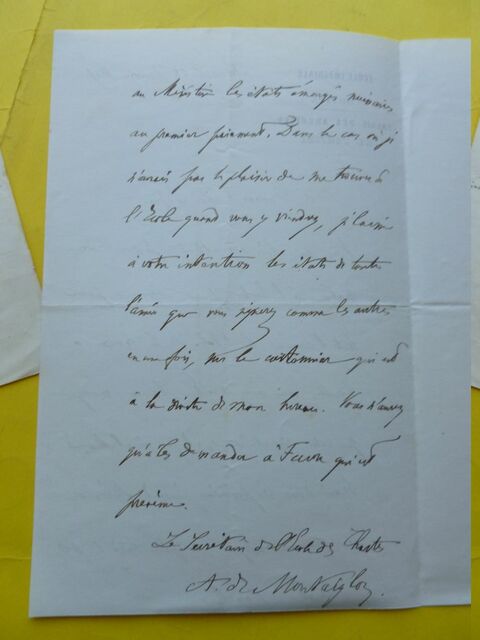 au Ministère les états émargés nécessaires
au premier paiement. Dans le cas où je
n'aurais pas le plaisir de me trouver à
l'École quand vous y viendrez, j'laisse
à votre intention les états de toute
l'année que vous signerez comme les autres
en une fois, sur le cartonnier qui est
à la droite de mon bureau. Vous n'aurez
qu'à les demander à Favre qui est
prévenu.
Le Secrétaire de l'École des Chartes
A. de Montaiglon.